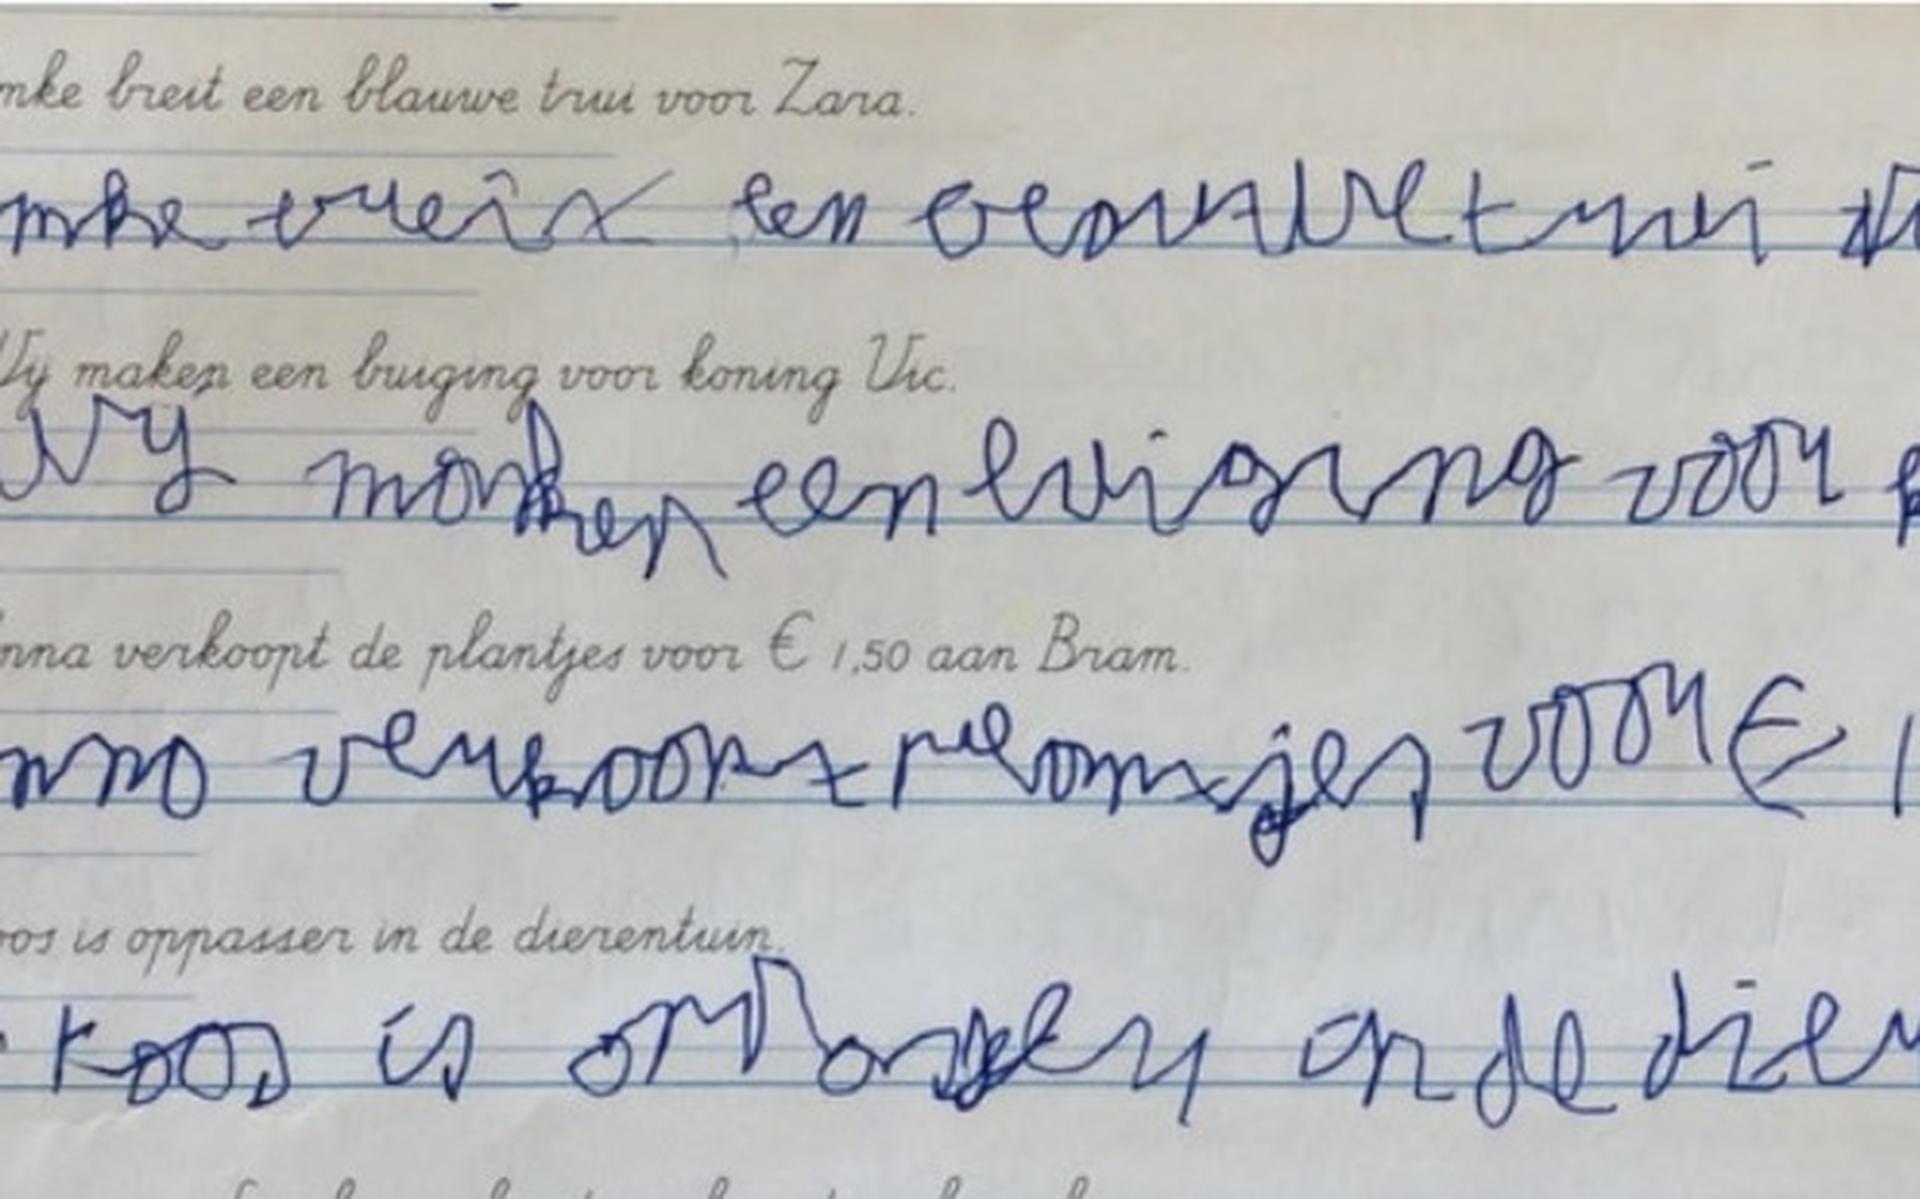 mke breit een blauwe trui voor Zara.
mke een trui
Wij maken een buiging voor koning Vic.
Wij maken een buiging voor k
nna verkoopt de plantjes voor € 1,50 aan Bram.
nna verkoopt plantjes voor € 1
oos is oppasser in de dierentuin.
Koos is oppasser in de dier